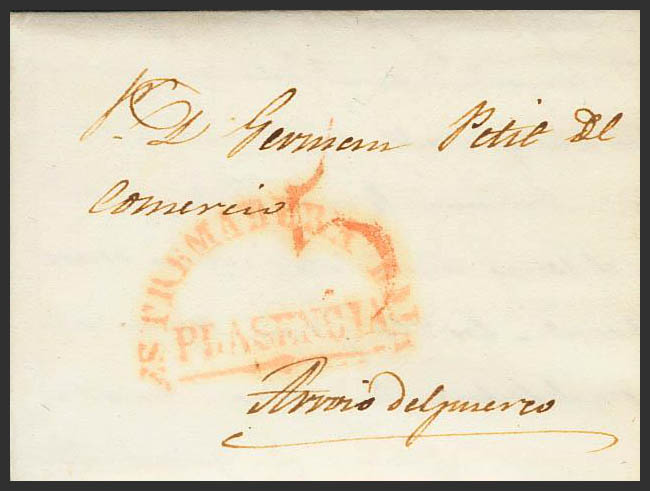 Sr. D. German Petit Del
Comercio
ESTREMADURA ALTA
PLASENCIA
Arroio del puerco